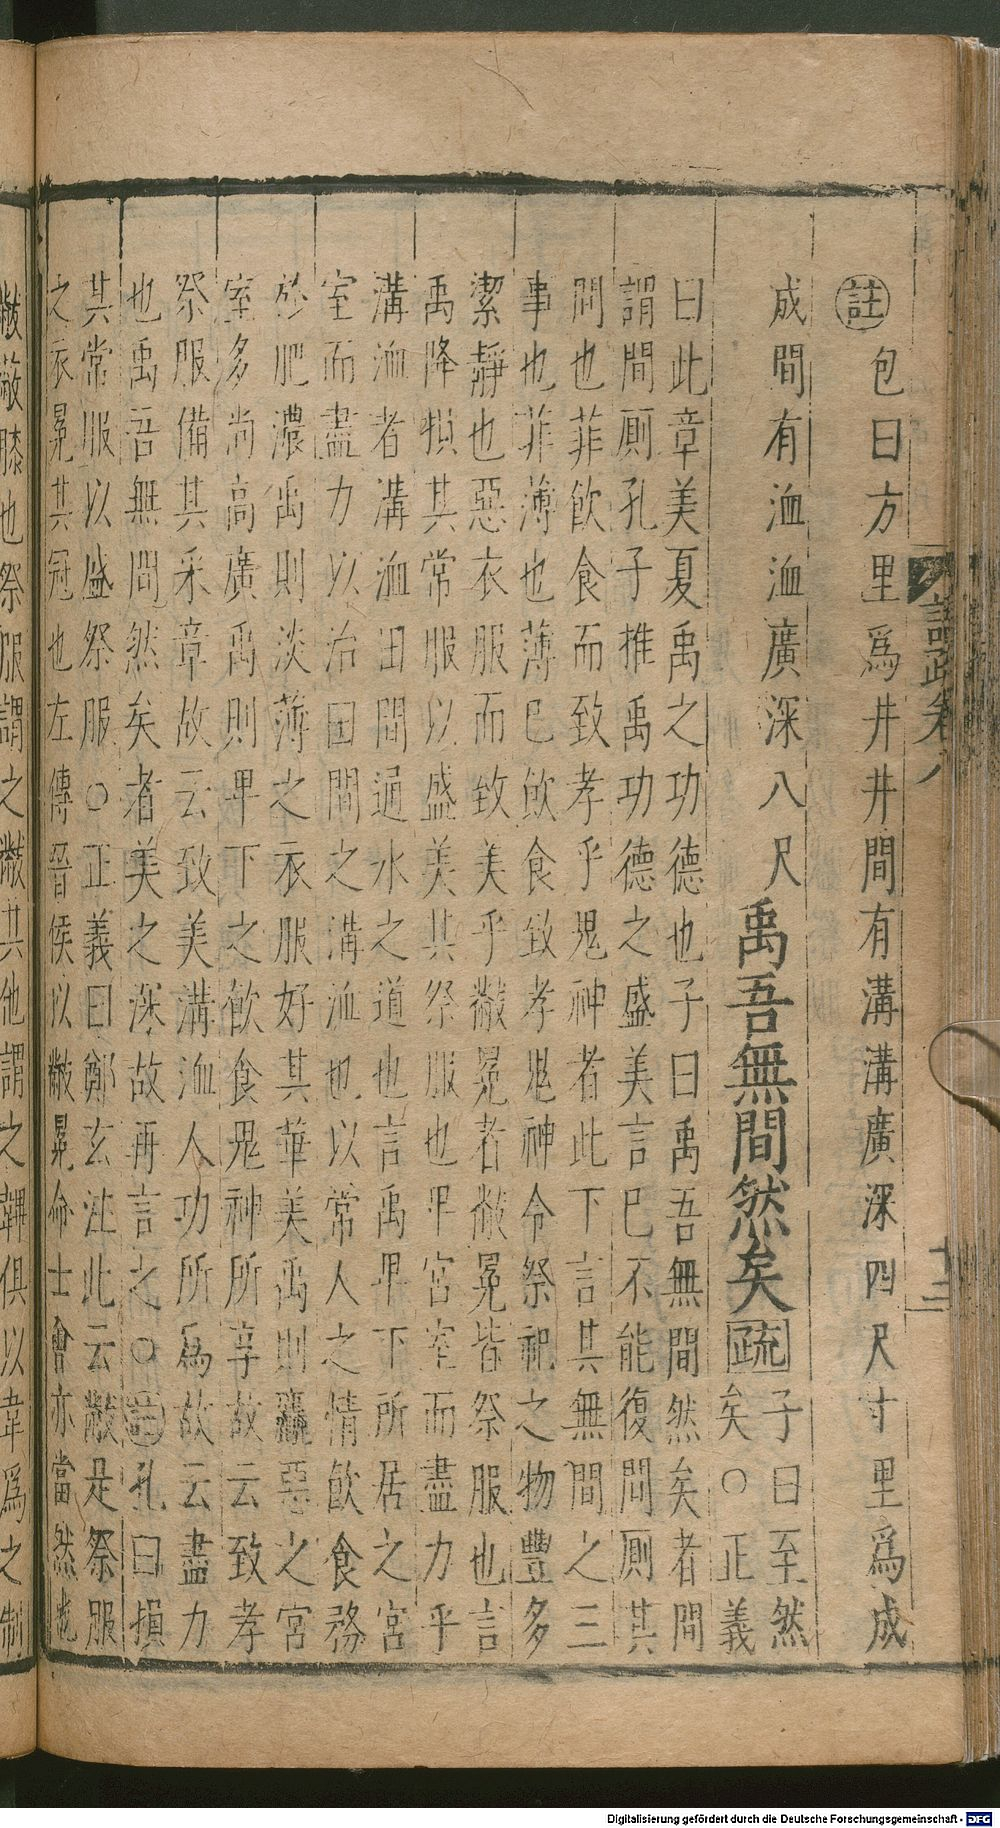 註包曰方里爲井井間有溝溝廣深四尺寸里爲成
成間有洫洫廣深八尺禹吾無間然矣疏子曰至然
矣○正義
曰此章美夏禹之功德也子曰禹吾無間然矣者間
謂間厠孔子推禹功德之盛美言已不能復間厠其
間也菲飲食而致孝乎鬼神者此下言其無間之三
事也菲薄也薄已飲食致孝鬼神令祭祀之物豐多
潔靜也惡衣服而致美乎黻冕者黻冕皆祭服也言
禹降損其常服以盛美其祭服也卑宮室而盡力乎
溝洫者溝洫田間通水之道也言禹卑下所居之宮
室而盡力以治田間之溝洫也以常人之情飲食務
於肥濃禹則淡薄之衣服好其華美禹則麤惡之宮
室多尚高廣禹則卑下之飲食鬼神所享故云致孝
祭服備其采章故云致美溝洫人功所爲故云盡力
也禹吾無間然矣者美之深故再言之○註孔曰損
其常服以盛祭服○正義曰鄭玄注此云黻是祭服
之衣冕其冠也左傳晉侯以黻冕命士會亦當然也
黻蔽膝也祭服謂之黻其他謂之韠俱以韋爲之制
語疏卷八
十三
Digitalisierung gefördert durch die Deutsche Forschungsgemeinschaft - DFG